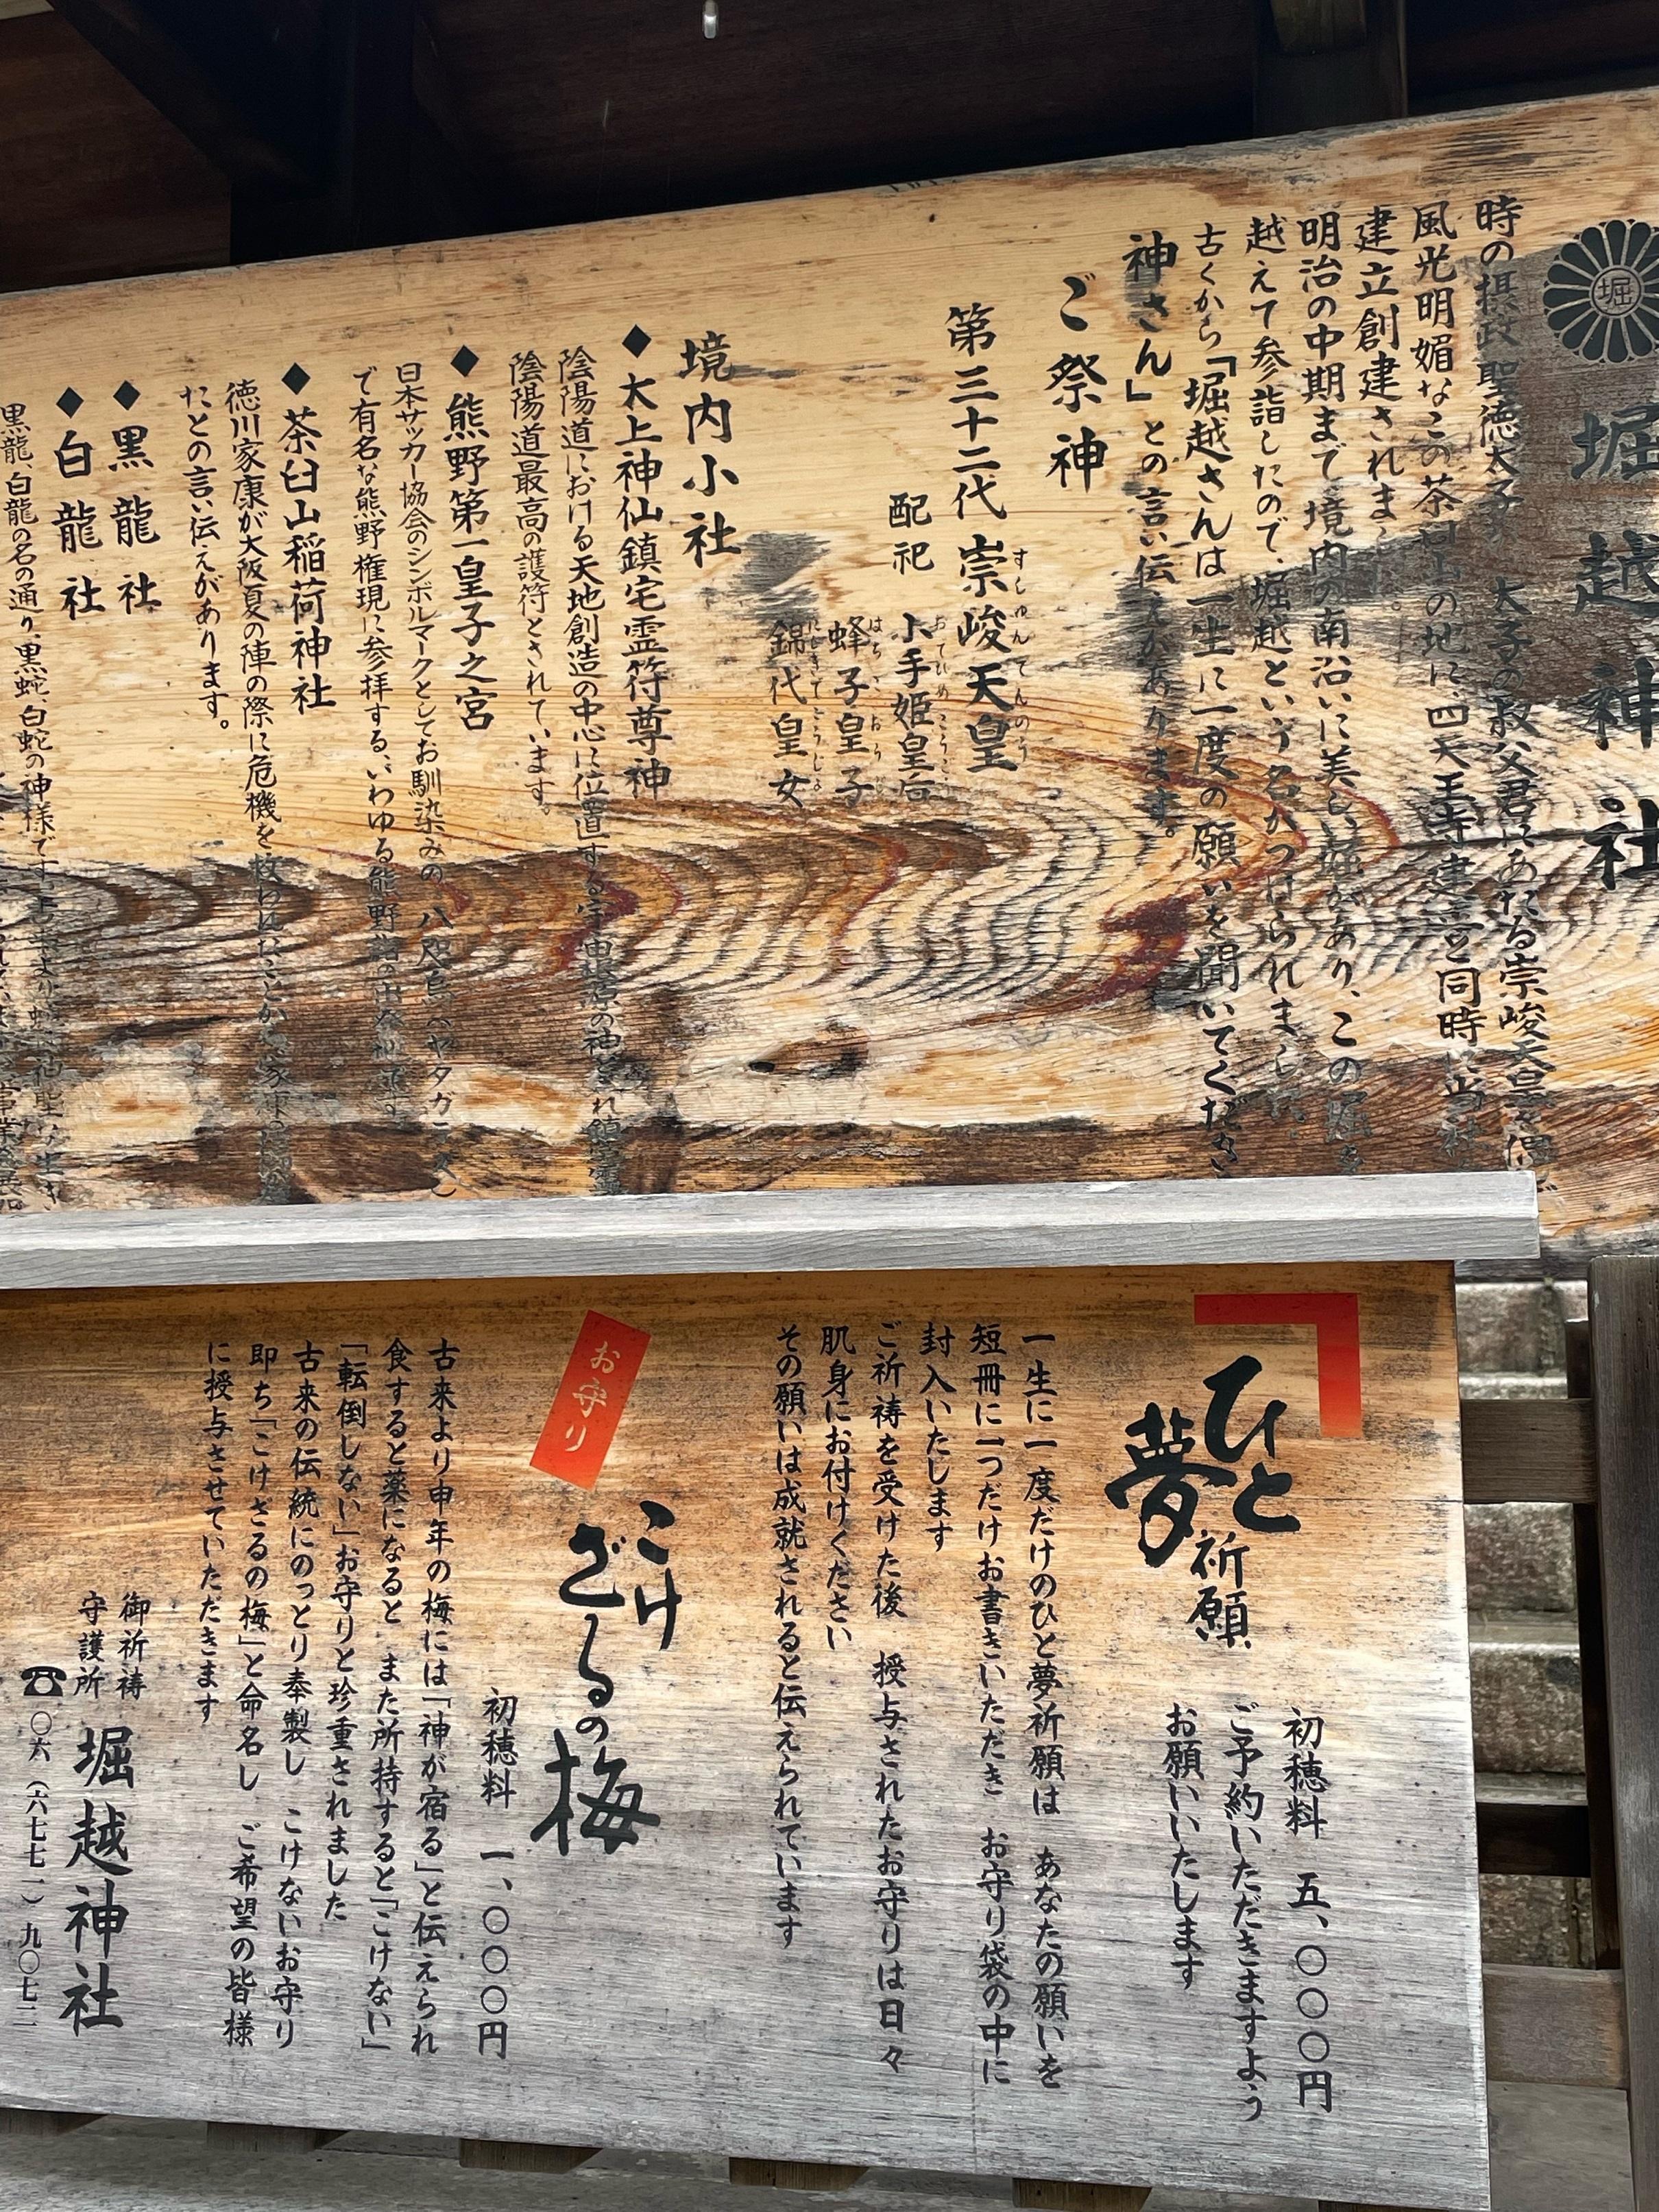 堀
堀越神社
時の摂政聖徳太子が、太子の叔父君にあたる崇峻天皇を偲び
風光明媚なこの茶臼山の地に、四天王寺建立と同時に当社を
建立創建されました。
明治の中期まで境内の南沿いに美しい堀があり、この堀を
越えて参詣したので、堀越という名がつけられました。
古くから「堀越さんは一生に一度の願いを聞いてくださる
神さん」との言い伝えがあります。
ご祭神
第三十二代 崇峻天皇
すしゅんてんのう
配祀
小手姫皇后
おてひめこうごう
蜂子皇子
はちこおうじ
錦代皇女
にしきてこうじょ
境内小社
◆太上神仙鎮宅霊符尊神
陰陽道における天地創造の中心に位置する宇宙根源の神
陰陽道最高の護符とされています。
◆熊野第一皇子之宮
日本サッカー協会のシンボルマークとしてお馴染みの 八咫烏(ヤタガラス)
で有名な熊野権現に参拝する、いわゆる熊野詣の
◆茶臼山稲荷神社
徳川家康が大阪夏の陣の際に危機を救われたことから
たとの言い伝えがあります。
◆黒龍社
◆白龍社
黒龍、白龍の名の通り、黒蛇、白蛇の神様です。
ひと夢祈願
初穂料 五、〇〇〇円
ご予約いただきますよう
お願いいたします
一生に一度だけのひと夢祈願は あなたの願いを
短冊に一つだけお書きいただき お守り袋の中に
封入いたします
ご祈祷を受けた後 授与されたお守りは日々
肌身にお付けください
その願いは成就されると伝えられています
お守り
こけざるの梅
初穂料 一、〇〇〇円
古来より申年の梅には「神が宿る」と伝えられ
食すると薬になると また所持すると「こけない」
「転倒しない」お守りと珍重されました
古来の伝統にのっとり奉製し こけないお守り
即ち「こけざるの梅」と命名し ご希望の皆様
に授与させていただきます
御祈祷
守護所
堀越神社
☎〇六(六七七一)九〇七二